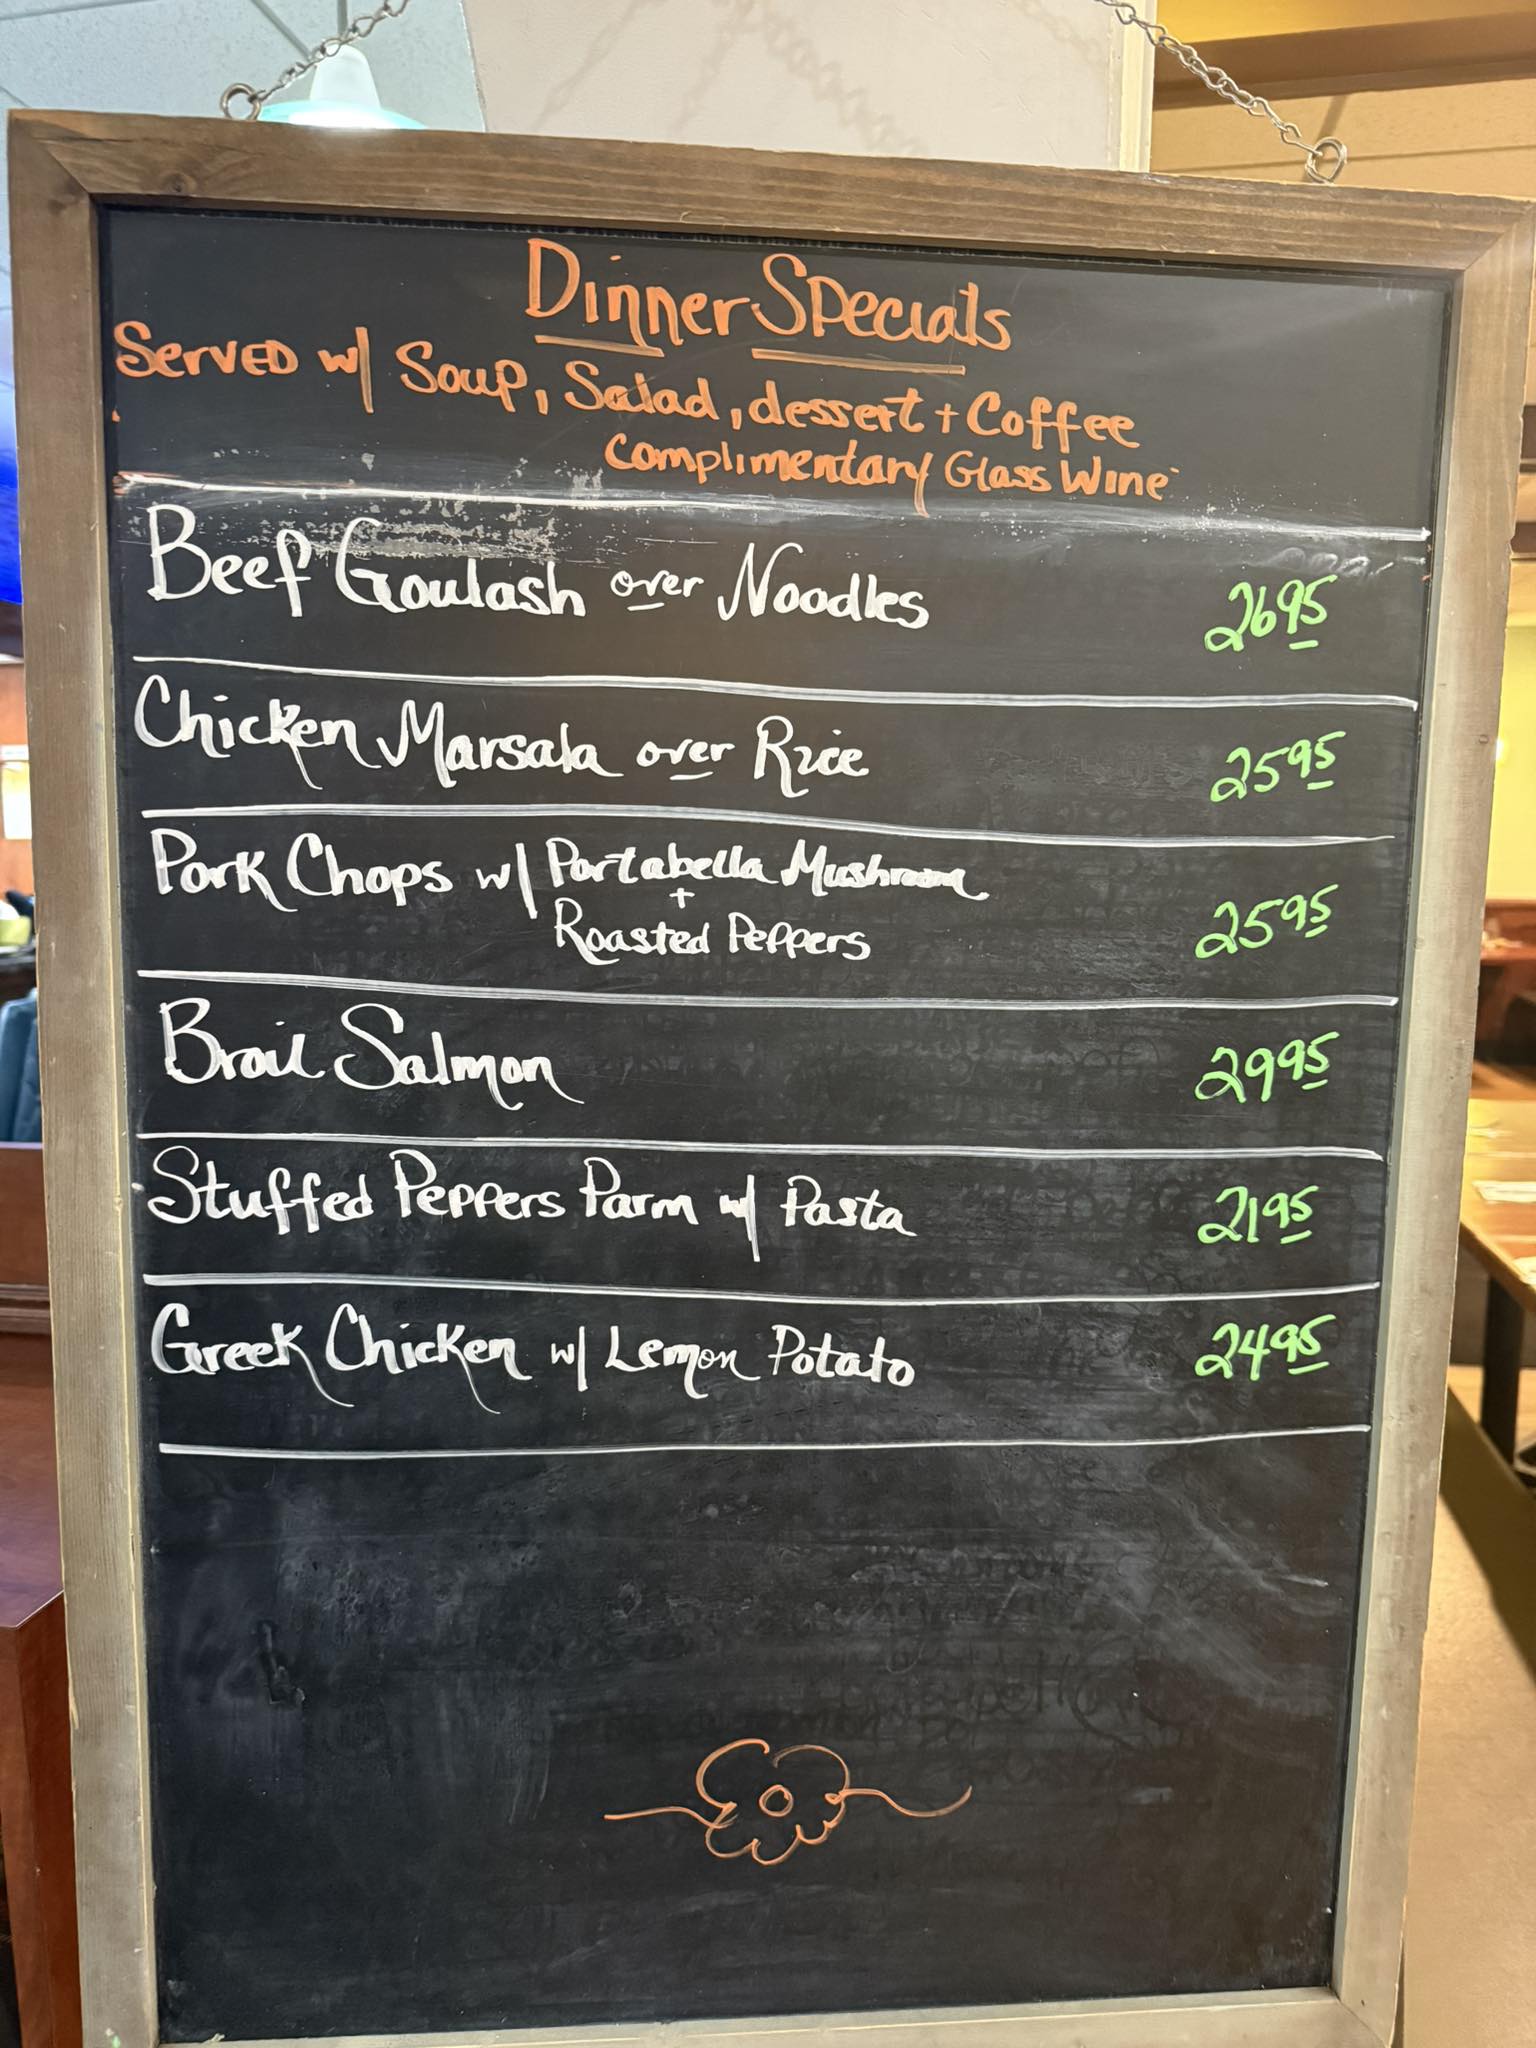 Dinner Specials
Served w/ Soup, Salad, dessert + Coffee
Complimentary Glass Wine
Beef Goulash over Noodles 26 95
Chicken Marsala over Rice 25 95
Pork Chops w/ Portabella Mushroom
+
Roasted Peppers 25 95
Broil Salmon 29 95
Stuffed Peppers Parm w/ Pasta 21 95
Greek Chicken w/ Lemon Potato 24 95